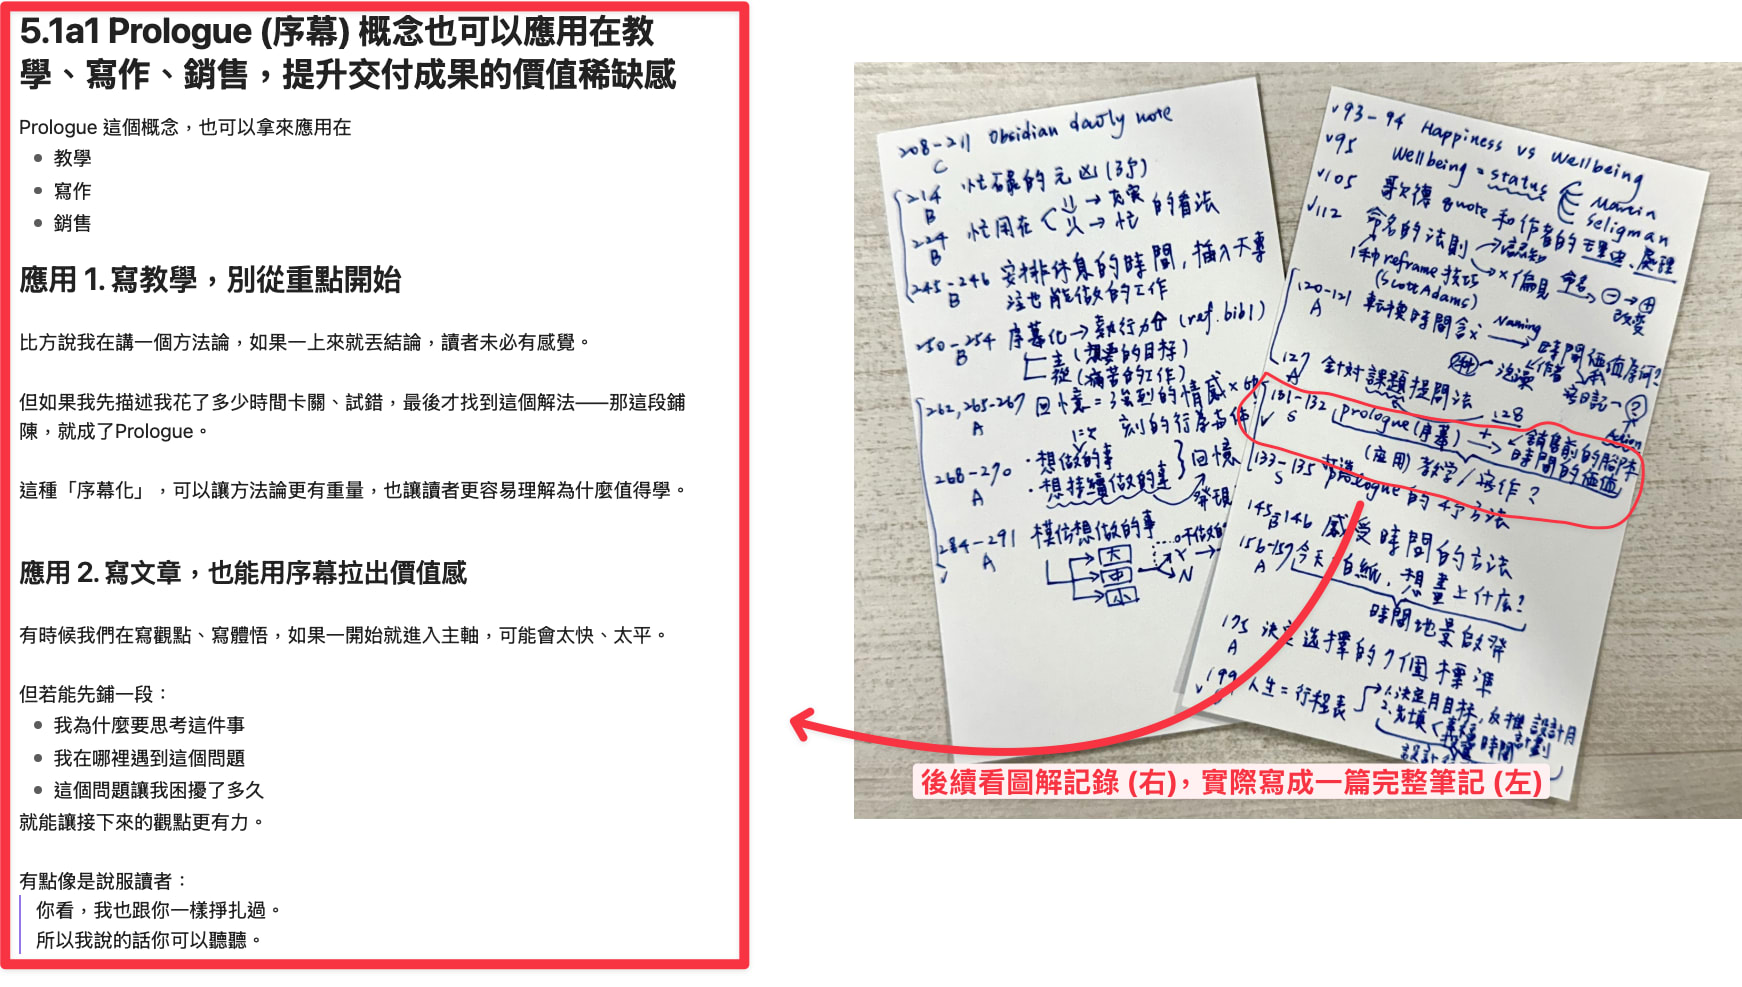 5.1a1 Prologue (序幕) 概念也可以應用在教
學、寫作、銷售，提升交付成果的價值稀缺感
Prologue 這個概念，也可以拿來應用在
教學
寫作
銷售
應用 1. 寫教學，別從重點開始
比方說我在講一個方法論，如果一上來就丟結論，讀者未必有感覺。
但如果我先描述我花了多少時間卡關、試錯，最後才找到這個解法——那這段鋪
陳，就成了Prologue。
這種「序幕化」，可以讓方法論更有重量，也讓讀者更容易理解為什麼值得學。
應用 2. 寫文章，也能用序幕拉出價值感
有時候我們在寫觀點、寫體悟，如果一開始就進入主軸，可能會太快、太平。
但若能先鋪一段：
我為什麼要思考這件事
我在哪裡遇到這個問題
這個問題讓我困擾了多久
就能讓接下來的觀點更有力。
有點像是說服讀者：
你看，我也跟你一樣掙扎過。
所以我說的話你可以聽聽。
208-211 Obsidian daily note
C
214 忙碌的元凶
B
224 忙用在 → 充實 的看法
B → 忙
245-246 安排休息的時間，插入不專
B 注也能做的工作
250-254 序幕化→執行力 (ref. bib1)
B 主(想要的目標)
從(痛苦的工作)
262, 265-267 回憶=深刻的情感×
A 刻的行為
268-270 ·想做的事 回憶
A ·想持續做的事 發現
284-291 模仿想做的事
A 大
中 Y
小 N
93-94 Happiness vs Wellbeing
95 Wellbeing = status Martin
Seligman
105 歌德 quote 和作者的
112 命名的法則 處理
1種 reframe 技巧 × 偏見 命名
(Scott Adams) 改變
120-121 轉換時間含 Naming 時間價值為何?
A
127 針對課題提問法
A
131-132 prologue (序幕) + 銷售前的
S 128 時間的價值 Action
(應用) 教學/寫作?
133-135 打造 prologue 的 方法
S
145-146 感受時間的方法
B
156-157 今天=白紙，想畫上什麼?
A 時間地景啟發
175 決定選擇的7個標準
A
199 人生=行程表 1.決定月目標，反推設計月
2.先填
後續看圖解記錄 (右)，實際寫成一篇完整筆記 (左)